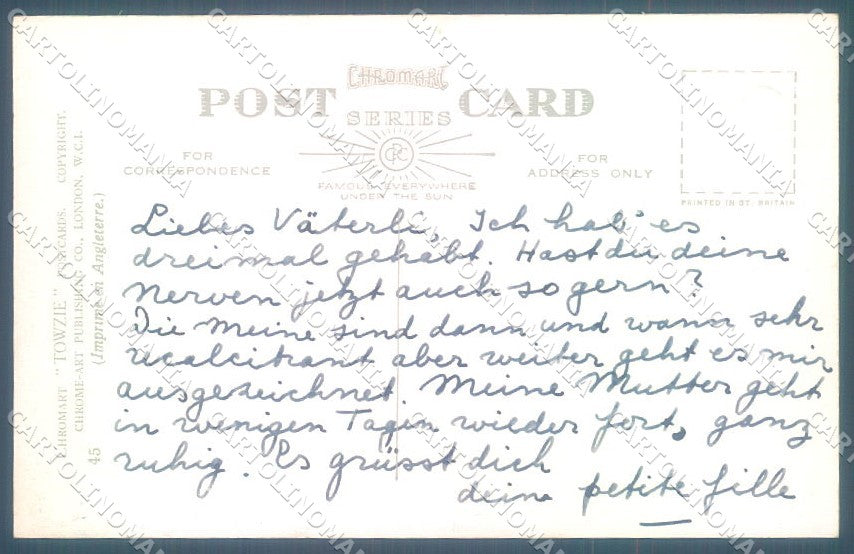 CHROMART
POST CARD
SERIES
FOR
CORRESPONDENCE
CPC
FAMOUS EVERYWHERE
UNDER THE SUN
FOR
ADDRESS ONLY
PRINTED IN GT. BRITAIN
CHROMART "TOWZIE" POSTCARDS. COPYRIGHT.
CHROME-ART PUBLISHING CO., LONDON, W.C.1.
(Imprimé en Angleterre.)
45
Liebes Väterli, Ich hab' es
dreimal gehabt. Hast du deine
Nerven jetzt auch so gern?
Die Meine sind dann und wann sehr
recalcitrant aber weiter geht es mir
ausgezeichnet. Meine Mutter geht
in wenigen Tagen wieder fort, ganz
ruhig. Es grüsst dich
deine petite fille
CARTOLINOMANIA